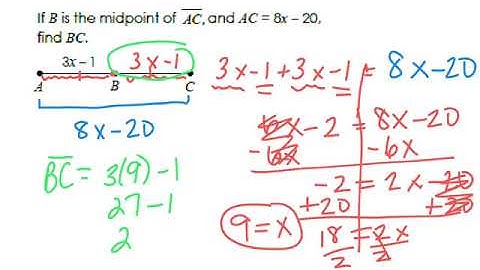 If B is the midpoint of AC, and AC = 8x – 20,
find BC.
3x – 1 3x-1
A B C
8x-20
BC = 3(9) - 1
27 - 1
2
3x-1+3x-1 = 8x-20
6x-2 = 8x-20
-6x -6x
-2 = 2x-20
+20 +20
18 = 2x
2 2
9=x